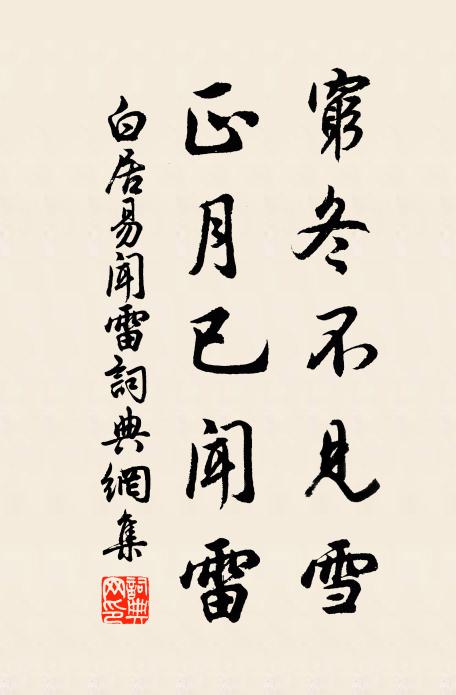 窮冬不見雪
正月已聞雷
白居易聞雷詞典網集
詞典网印